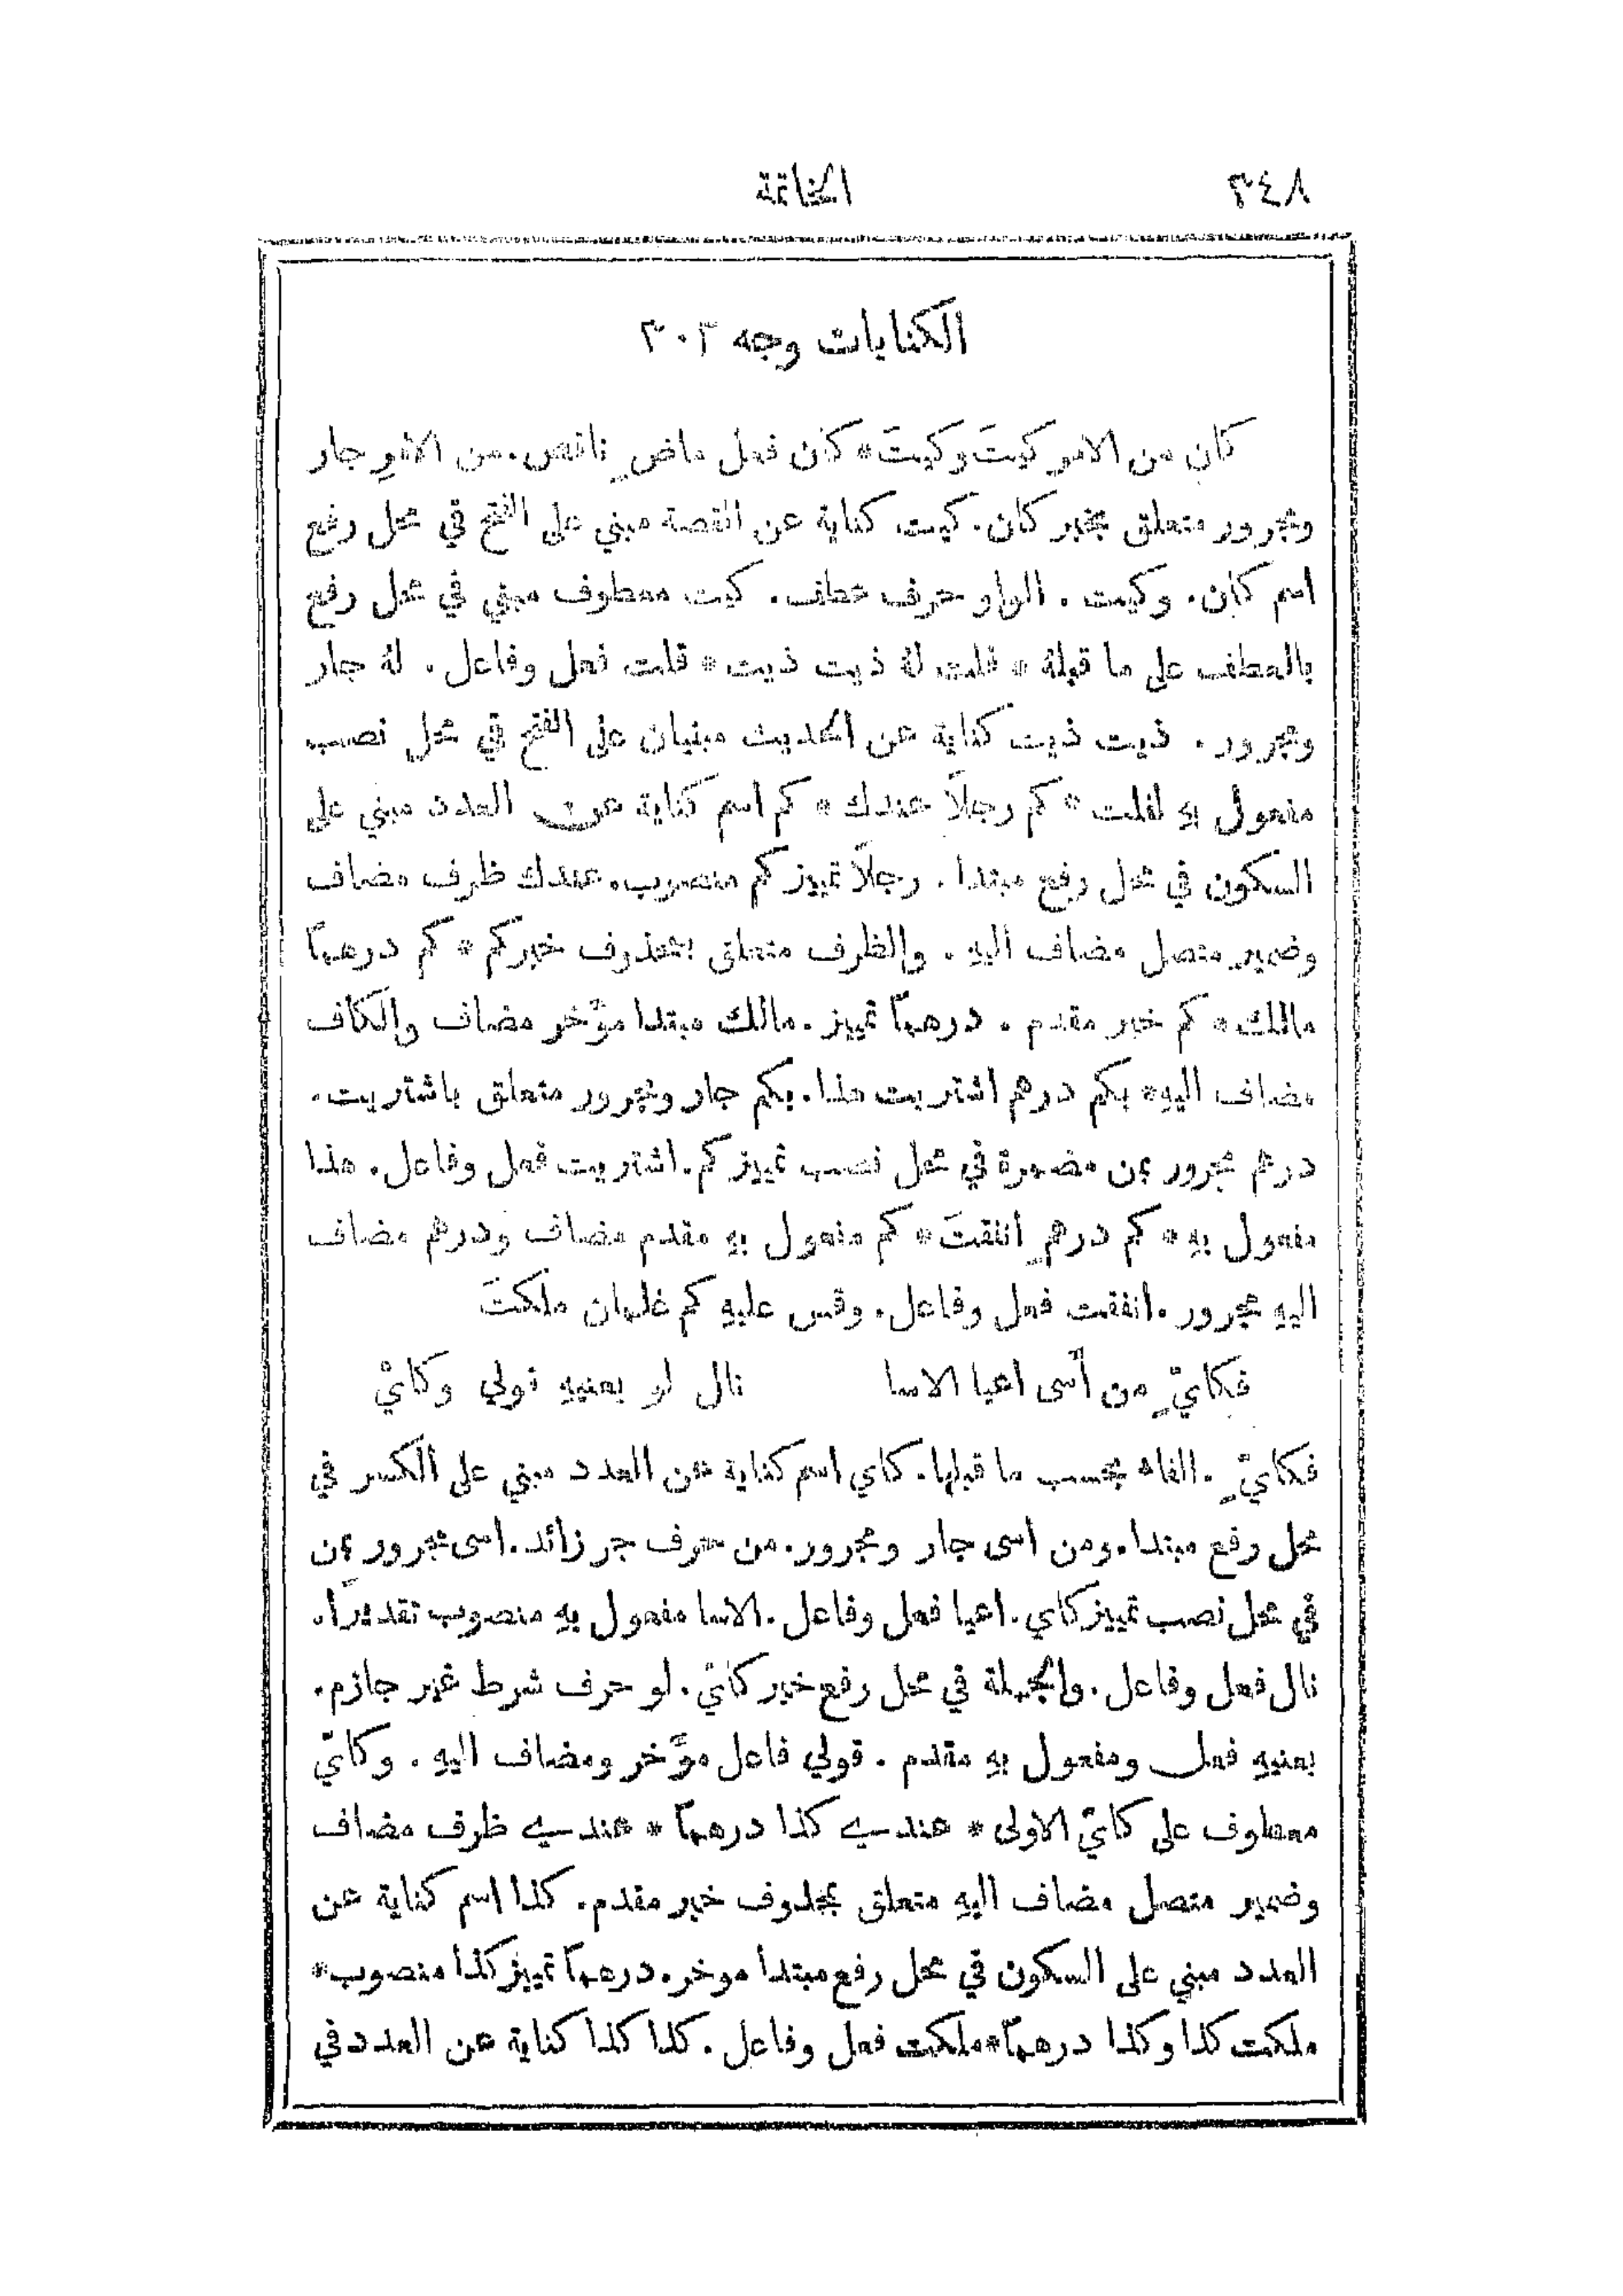 ٣٤٨
الخاتمة
الكنايات وجه ٣٠٢
كان من الامر كيتَ وكيتَ * كان فعل ماضٍ ناقص. من الامرِ جار
ومجرور متعلق بخبر كان. كيت كناية عن القصة مبني على الفتح في محل رفع
اسم كان. وكيت. الواو حرف عطف. كيت معطوف مبني في محل رفع
بالعطف على ما قبلهُ * قلت لهُ ذيت ذيت * قلت فعل وفاعل. لهُ جار
ومجرور. ذيت ذيت كناية عن الحديث مبنيان على الفتح في محل نصب
مفعول به لقلت * كم رجلاً عندك * كم اسم كناية عن العدد مبني على
السكون في محل رفع مبتدا. رجلاً تمييز كم منصوب. عندك ظرف مضاف
وضمير متصل مضاف اليهِ. والظرف متعلق بمحذوف خبركم * كم درهماً
مالك * كم خبر مقدم. درهماً تمييز. مالك مبتدا مؤَخر مضاف والكاف
مضاف اليهِ * بكم درهم اشتريت هذا. بكم جار ومجرور متعلق باشتريت.
درهم مجرور بمن مضمرة في محل نصب تمييز كم. اشتريت فعل وفاعل. هذا
مفعول بهِ * كم درهمٍ أنفقتَ * كم مفعول بهِ مقدم مضاف ودرهم مضاف
اليهِ مجرور. انفقت فعل وفاعل. وقس عليهِ كم غلمان ملكتَ
فكايٍّ من أسى اعيا الاسا نال لو يعنيهِ قولي وكايْ
فكايٍّ. الفاء بحسب ما قبلها. كاي اسم كناية عن العدد مبني على الكسر في
محل رفع مبتدا. ومن اسى جار ومجرور. من حرف جر زائد. اسى مجرور بمن
في محل نصب تمييز كاي. اعيا فعل وفاعل. الاسا مفعول بهِ منصوب تقديرًا.
نال فعل وفاعل. والجملة في محل رفع خبر كايّ. لو حرف شرط غير جازم.
يعنيهِ فعل ومفعول بهِ مقدم. قولي فاعل مؤَخر ومضاف اليهِ. وكايّ
معطوف على كايّ الاولى * عندي كذا درهماً * عندي ظرف مضاف
وضمير متصل مضاف اليهِ متعلق بمحذوف خبر مقدم. كذا اسم كناية عن
العدد مبني على السكون في محل رفع مبتدا موخر. درهماً تمييز كذا منصوب *
ملكت كذا وكذا درهماً * ملكت فعل وفاعل. كذا كذا كناية عن العدد في